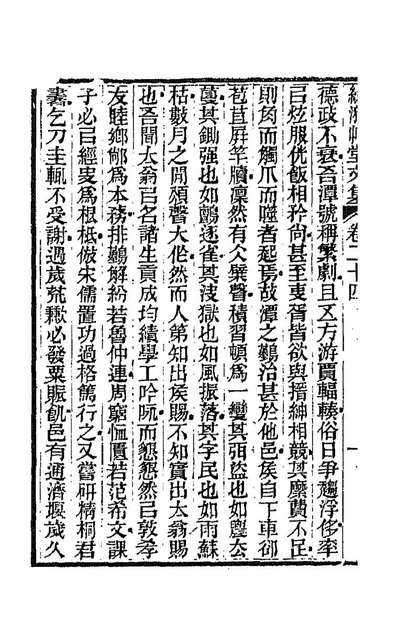 綠漪艸堂文集　卷二十四
德政不衰吾潭號稱繁劇且五方游賈輻輳俗日爭趨浮侈率
㠯炫服侊飯相矜尙甚至吏胥皆欲與搢紳相競其縻費不足
則角而觸爪而噬者起焉故潭之難治甚於他邑侯自下車卻
苞苴屛竿牘凜然有仌櫱聲積習頓爲一變其弭盜也如麈厺
蔓其鋤强也如鸇逐雀其決獄也如風振落其字民也如雨蘇
枯數月之閒頌聲大作然而人第知出矦賜不知實出太翁賜
也吾聞太翁㠯名諸生貢成均績學工吟咏而懇懇然㠯敦孝
友睦鄉鄰爲本務排難解紛若魯仲連周窮恤匱若范希文課
子必㠯經史爲根柢倣宋儒置功過格篤行之又嘗硏精桐君
書乞刀圭輒不受謝過歲荒歉必發粟賑刱邑有通濟堰歲久